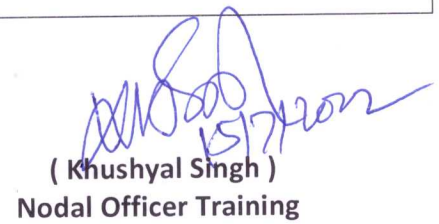 15/7/2022
( Khushyal Singh )
Nodal Officer Training